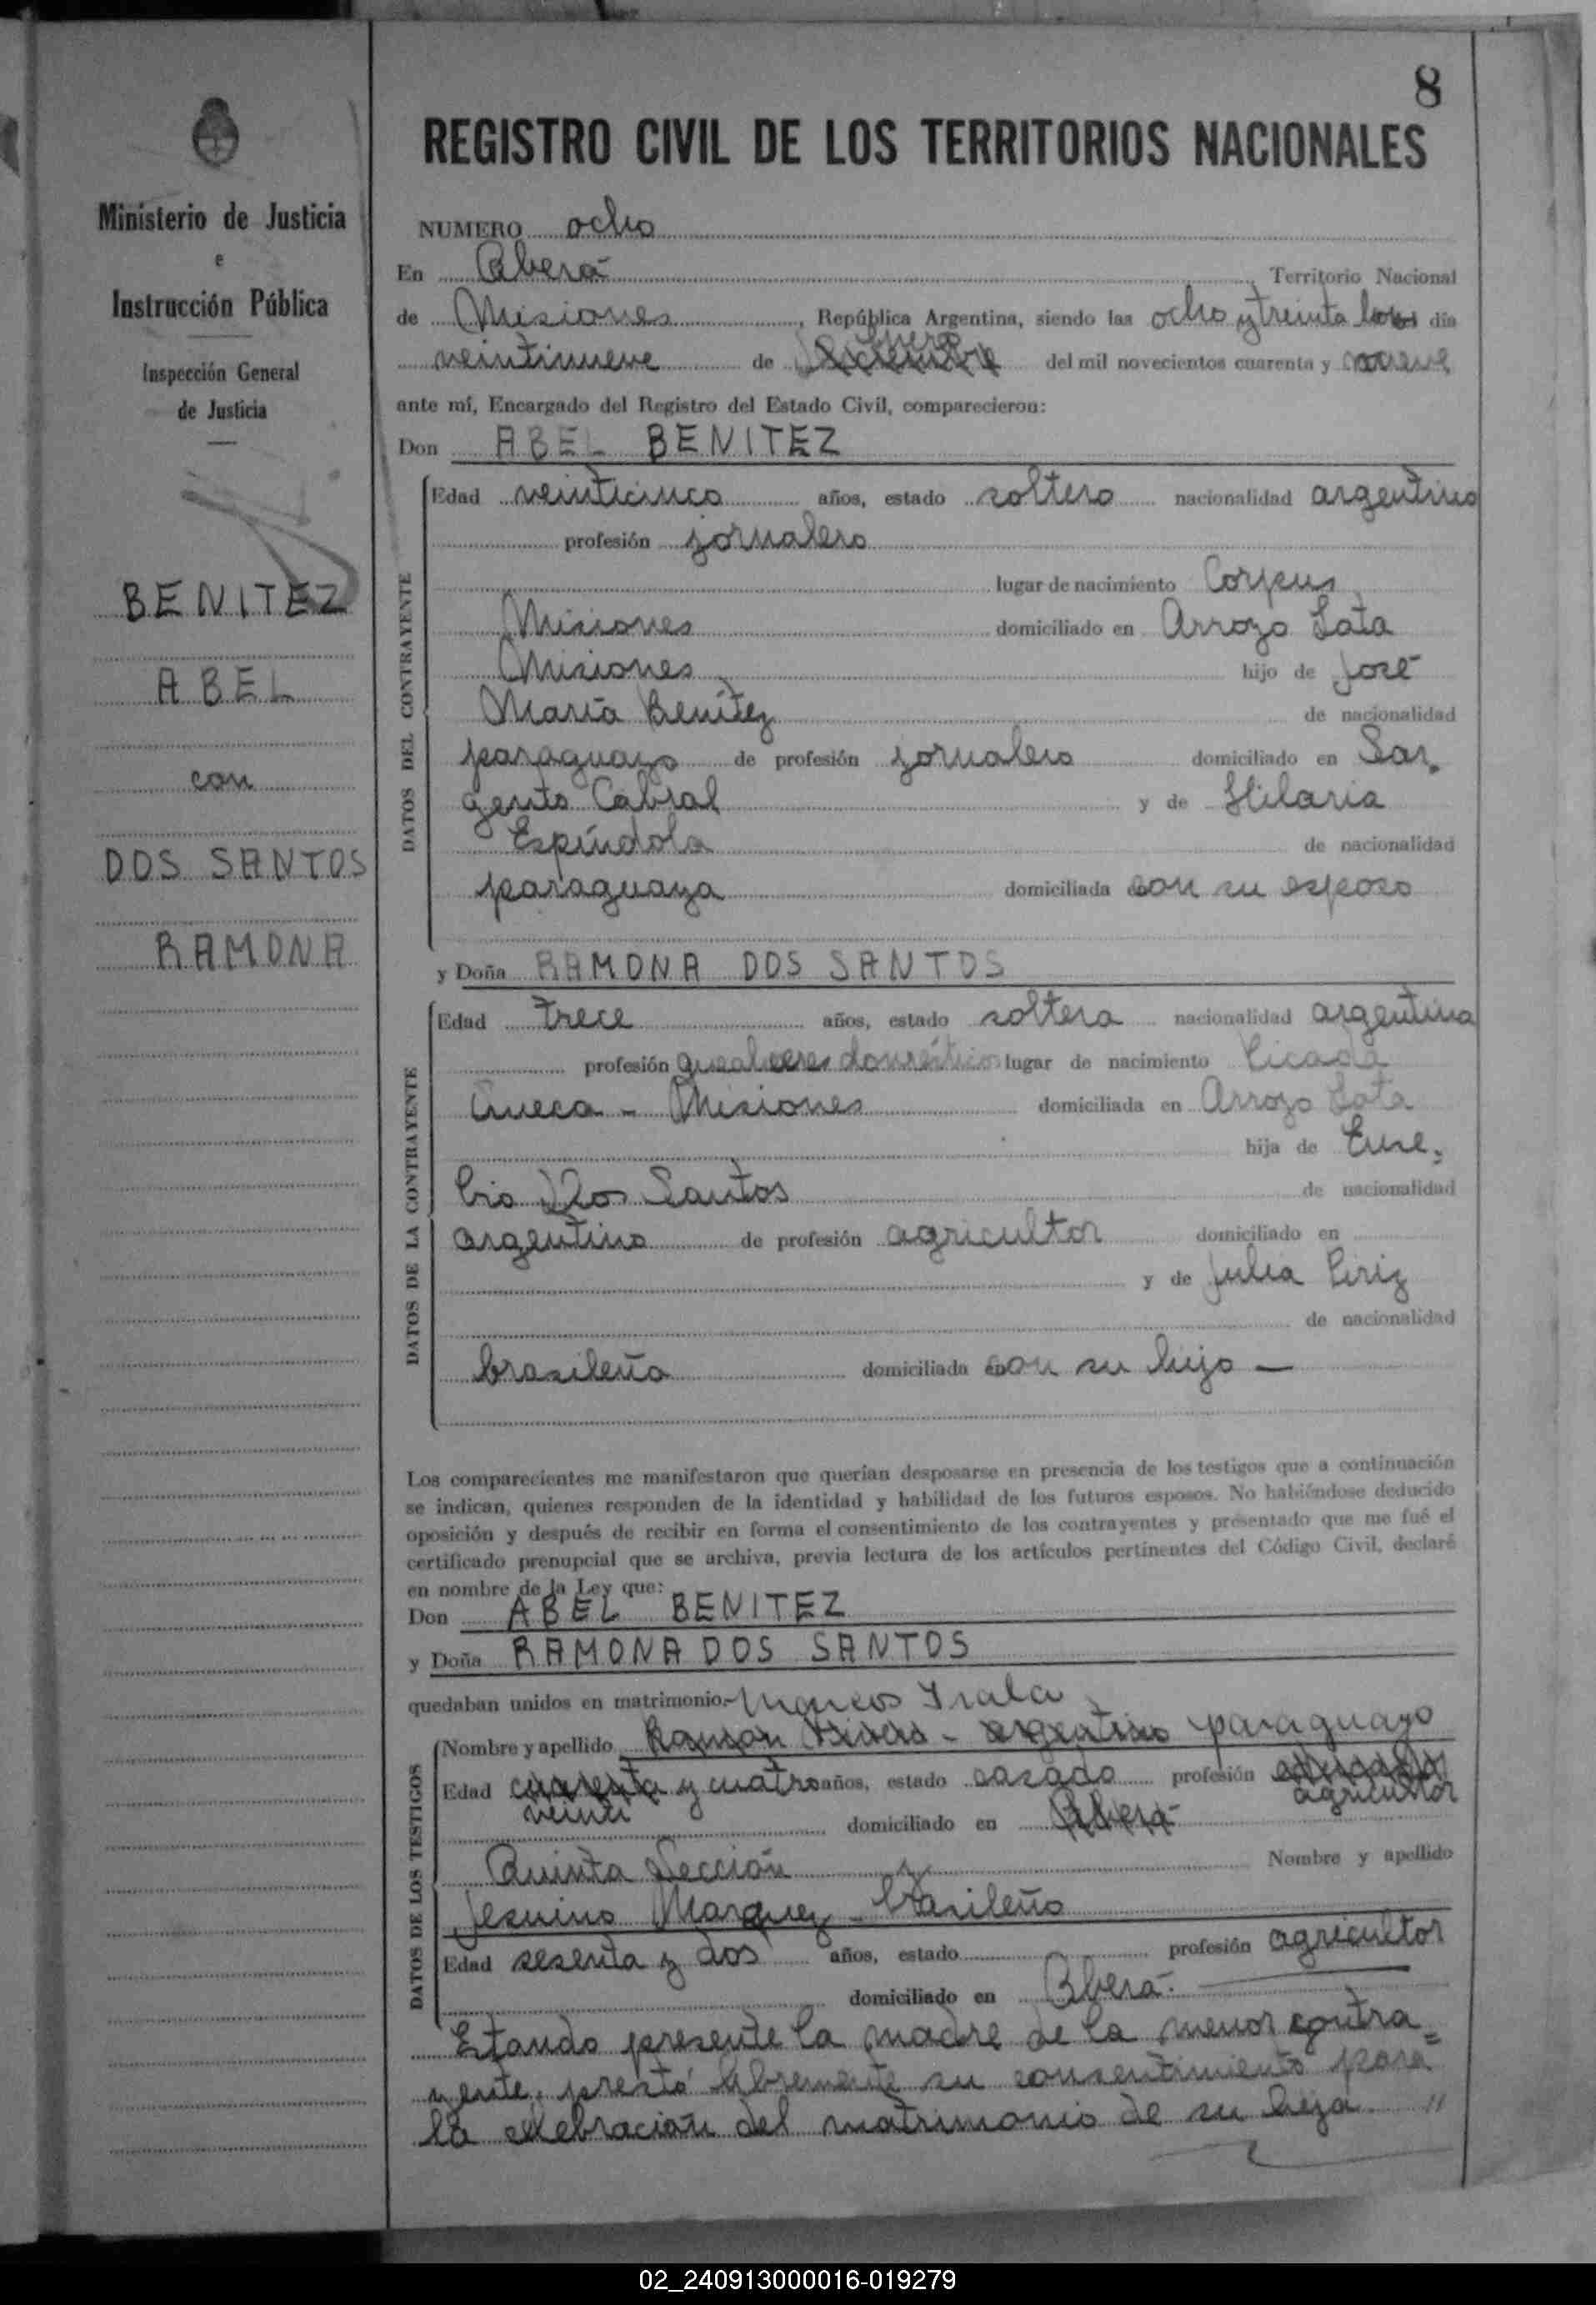 8
REGISTRO CIVIL DE LOS TERRITORIOS NACIONALES
Ministerio de Justicia
e
Instrucción Pública
Inspección General
de Justicia
BENITEZ
ABEL
con
DOS SANTOS
RAMONA
NUMERO ocho
En Oberá, Territorio Nacional
de Misiones, República Argentina, siendo las ocho y treinta horas día
Enero
veintinueve de Diciembre del mil novecientos cuarenta y nueve
ante mí, Encargado del Registro del Estado Civil, comparecieron:
Don ABEL BENITEZ
DATOS DEL CONTRAYENTE
Edad veinticinco años, estado soltero nacionalidad argentino
profesión jornalero
lugar de nacimiento Corpus
Misiones domiciliado en Arroyo Lata
Misiones hijo de José
María Benítez de nacionalidad
paraguayo de profesión jornalero domiciliado en Sar-
gento Cabral y de Hilaria
Espíndola de nacionalidad
paraguaya domiciliada con su esposo
y Doña RAMONA DOS SANTOS
DATOS DE LA CONTRAYENTE
Edad trece años, estado soltera nacionalidad argentina
profesión quehaceres domésticos lugar de nacimiento Picada
Sueca - Misiones domiciliada en Arroyo Lata
hija de Euse-
bio Dos Santos de nacionalidad
argentino de profesión agricultor domiciliado en
y de Julia Piriz
de nacionalidad
brasileña domiciliada con su hija -
Los comparecientes me manifestaron que querían desposarse en presencia de los testigos que a continuación
se indican, quienes responden de la identidad y habilidad de los futuros esposos. No habiéndose deducido
oposición y después de recibir en forma el consentimiento de los contrayentes y presentado que me fué el
certificado prenupcial que se archiva, previa lectura de los artículos pertinentes del Código Civil, declaré
en nombre de la Ley que:
Don ABEL BENITEZ
y Doña RAMONA DOS SANTOS
quedaban unidos en matrimonio.- Marcos Irala
DATOS DE LOS TESTIGOS
Nombre y apellido Ramón - argentino paraguayo
Edad cuarenta y cuatro años, estado casado profesión
veinti agricultor
domiciliado en Oberá
Quinta Sección y Nombre y apellido
Jesuino Marquez - brasileño
Edad sesenta y dos años, estado profesión agricultor
domiciliado en Oberá.-
Estando presente la madre de la menor contra=
yente, prestó libremente su consentimiento para
la celebración del matrimonio de su hija. "
02_240913000016-019279